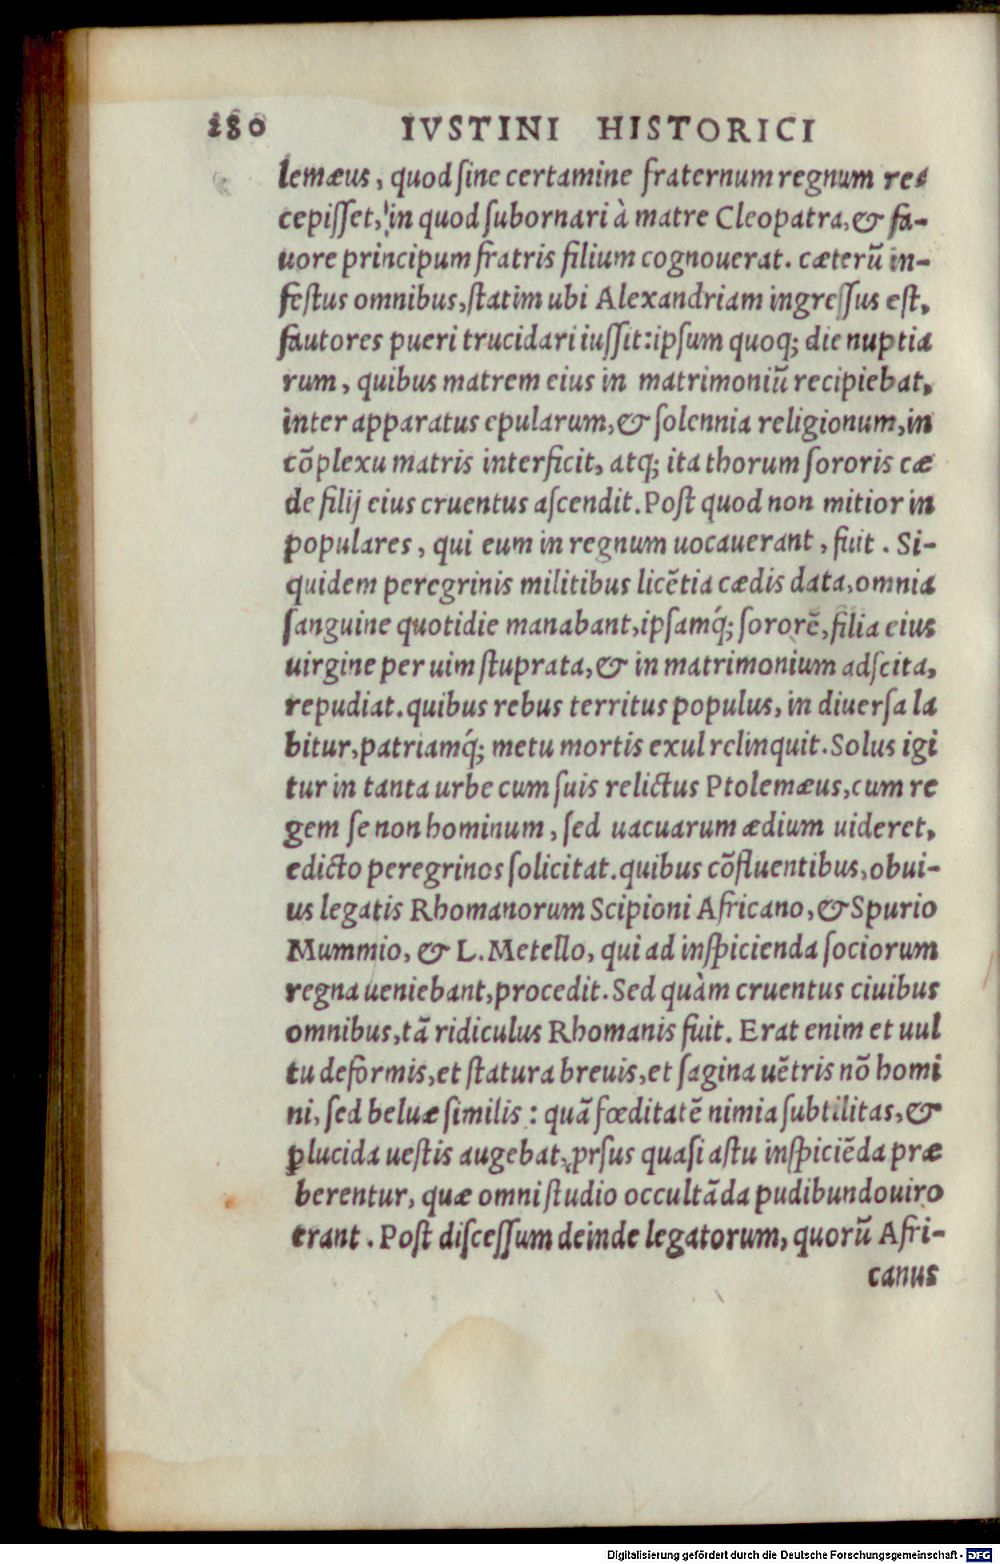 280 IVSTINI HISTORICI
lemæus, quod ſine certamine fraternum regnum re-
cepiſſet, in quod ſubornari à matre Cleopatra, & fa-
uore principum fratris filium cognouerat. cæterũ in-
feſtus omnibus, ſtatim ubi Alexandriam ingreſſus eſt,
fautores pueri trucidari iuſſit: ipſum quoq; die nuptia
rum, quibus matrem eius in matrimoniũ recipiebat,
inter apparatus epularum, & ſolennia religionum, in
cõplexu matris interficit, atq; ita thorum ſororis cæ
de filij eius cruentus aſcendit. Poſt quod non mitior in
populares, qui eum in regnum uocauerant, fuit. Si-
quidem peregrinis militibus licẽtia cædis data, omnia
ſanguine quotidie manabant, ipſamq́; ſororẽ, filia eius
uirgine per uim ſtuprata, & in matrimonium adſcita,
repudiat. quibus rebus territus populus, in diuerſa la
bitur, patriamq́; metu mortis exul relinquit. Solus igi
tur in tanta urbe cum ſuis relictus Ptolemæus, cum re
gem ſe non hominum, ſed uacuarum ædium uideret,
edicto peregrinos ſolicitat. quibus cõfluentibus, obui-
us legatis Rhomanorum Scipioni Africano, & Spurio
Mummio, & L. Metello, qui ad inſpicienda ſociorum
regna ueniebant, procedit. Sed quàm cruentus ciuibus
omnibus, tã ridiculus Rhomanis fuit. Erat enim et uul
tu deformis, et ſtatura breuis, et ſagina uẽtris nõ homi
ni, ſed beluæ ſimilis: quã fœditatẽ nimia ſubtilitas, &
ꝑlucida ueſtis augebat, ꝓrſus quaſi aſtu inſpiciẽda præ
berentur, quæ omni ſtudio occultãda pudibundo uiro
erant. Poſt diſceſſum deinde legatorum, quorũ Afri-
canus
Digitalisierung gefördert durch die Deutsche Forschungsgemeinschaft - DFG